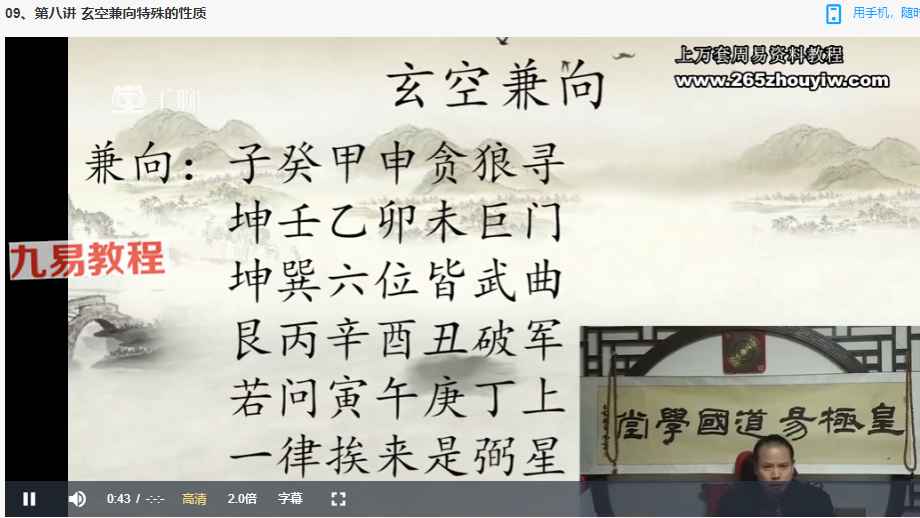 09、第八讲 玄空兼向特殊的性质
用手机，随时
上万套周易资料教程
www.265zhouyiw.com
玄空兼向
兼向：子癸甲申贪狼寻
坤壬乙卯未巨门
坤巽六位皆武曲
艮丙辛酉丑破军
若问寅午庚丁上
一律挨来是弼星
九易教程
皇極易道國學堂
0:43 / -:-:-
高清
2.0倍
字幕